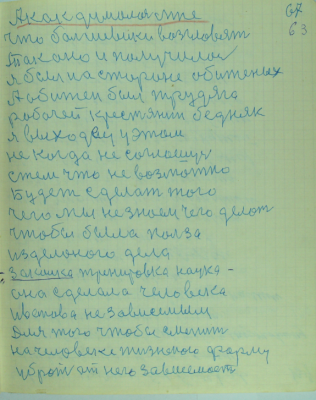 А как думало ст те
67
63
что балшевики возглавят
так оно и получилос
я был на стороне обиженых
А обижен был трудяга
рабочей крестянин бедняк
я выходец у этом
не когда не соглашус
с тем что не возможно
Будет сделат того
чего мы не знаем чего делат
чтобы была полза
из делоного дела
Закалка тренировка наука -
она сделала человека
Иванова не зависемым
Для того чтобы сменит
на человеке жизненую форму
убрат от него зависемост